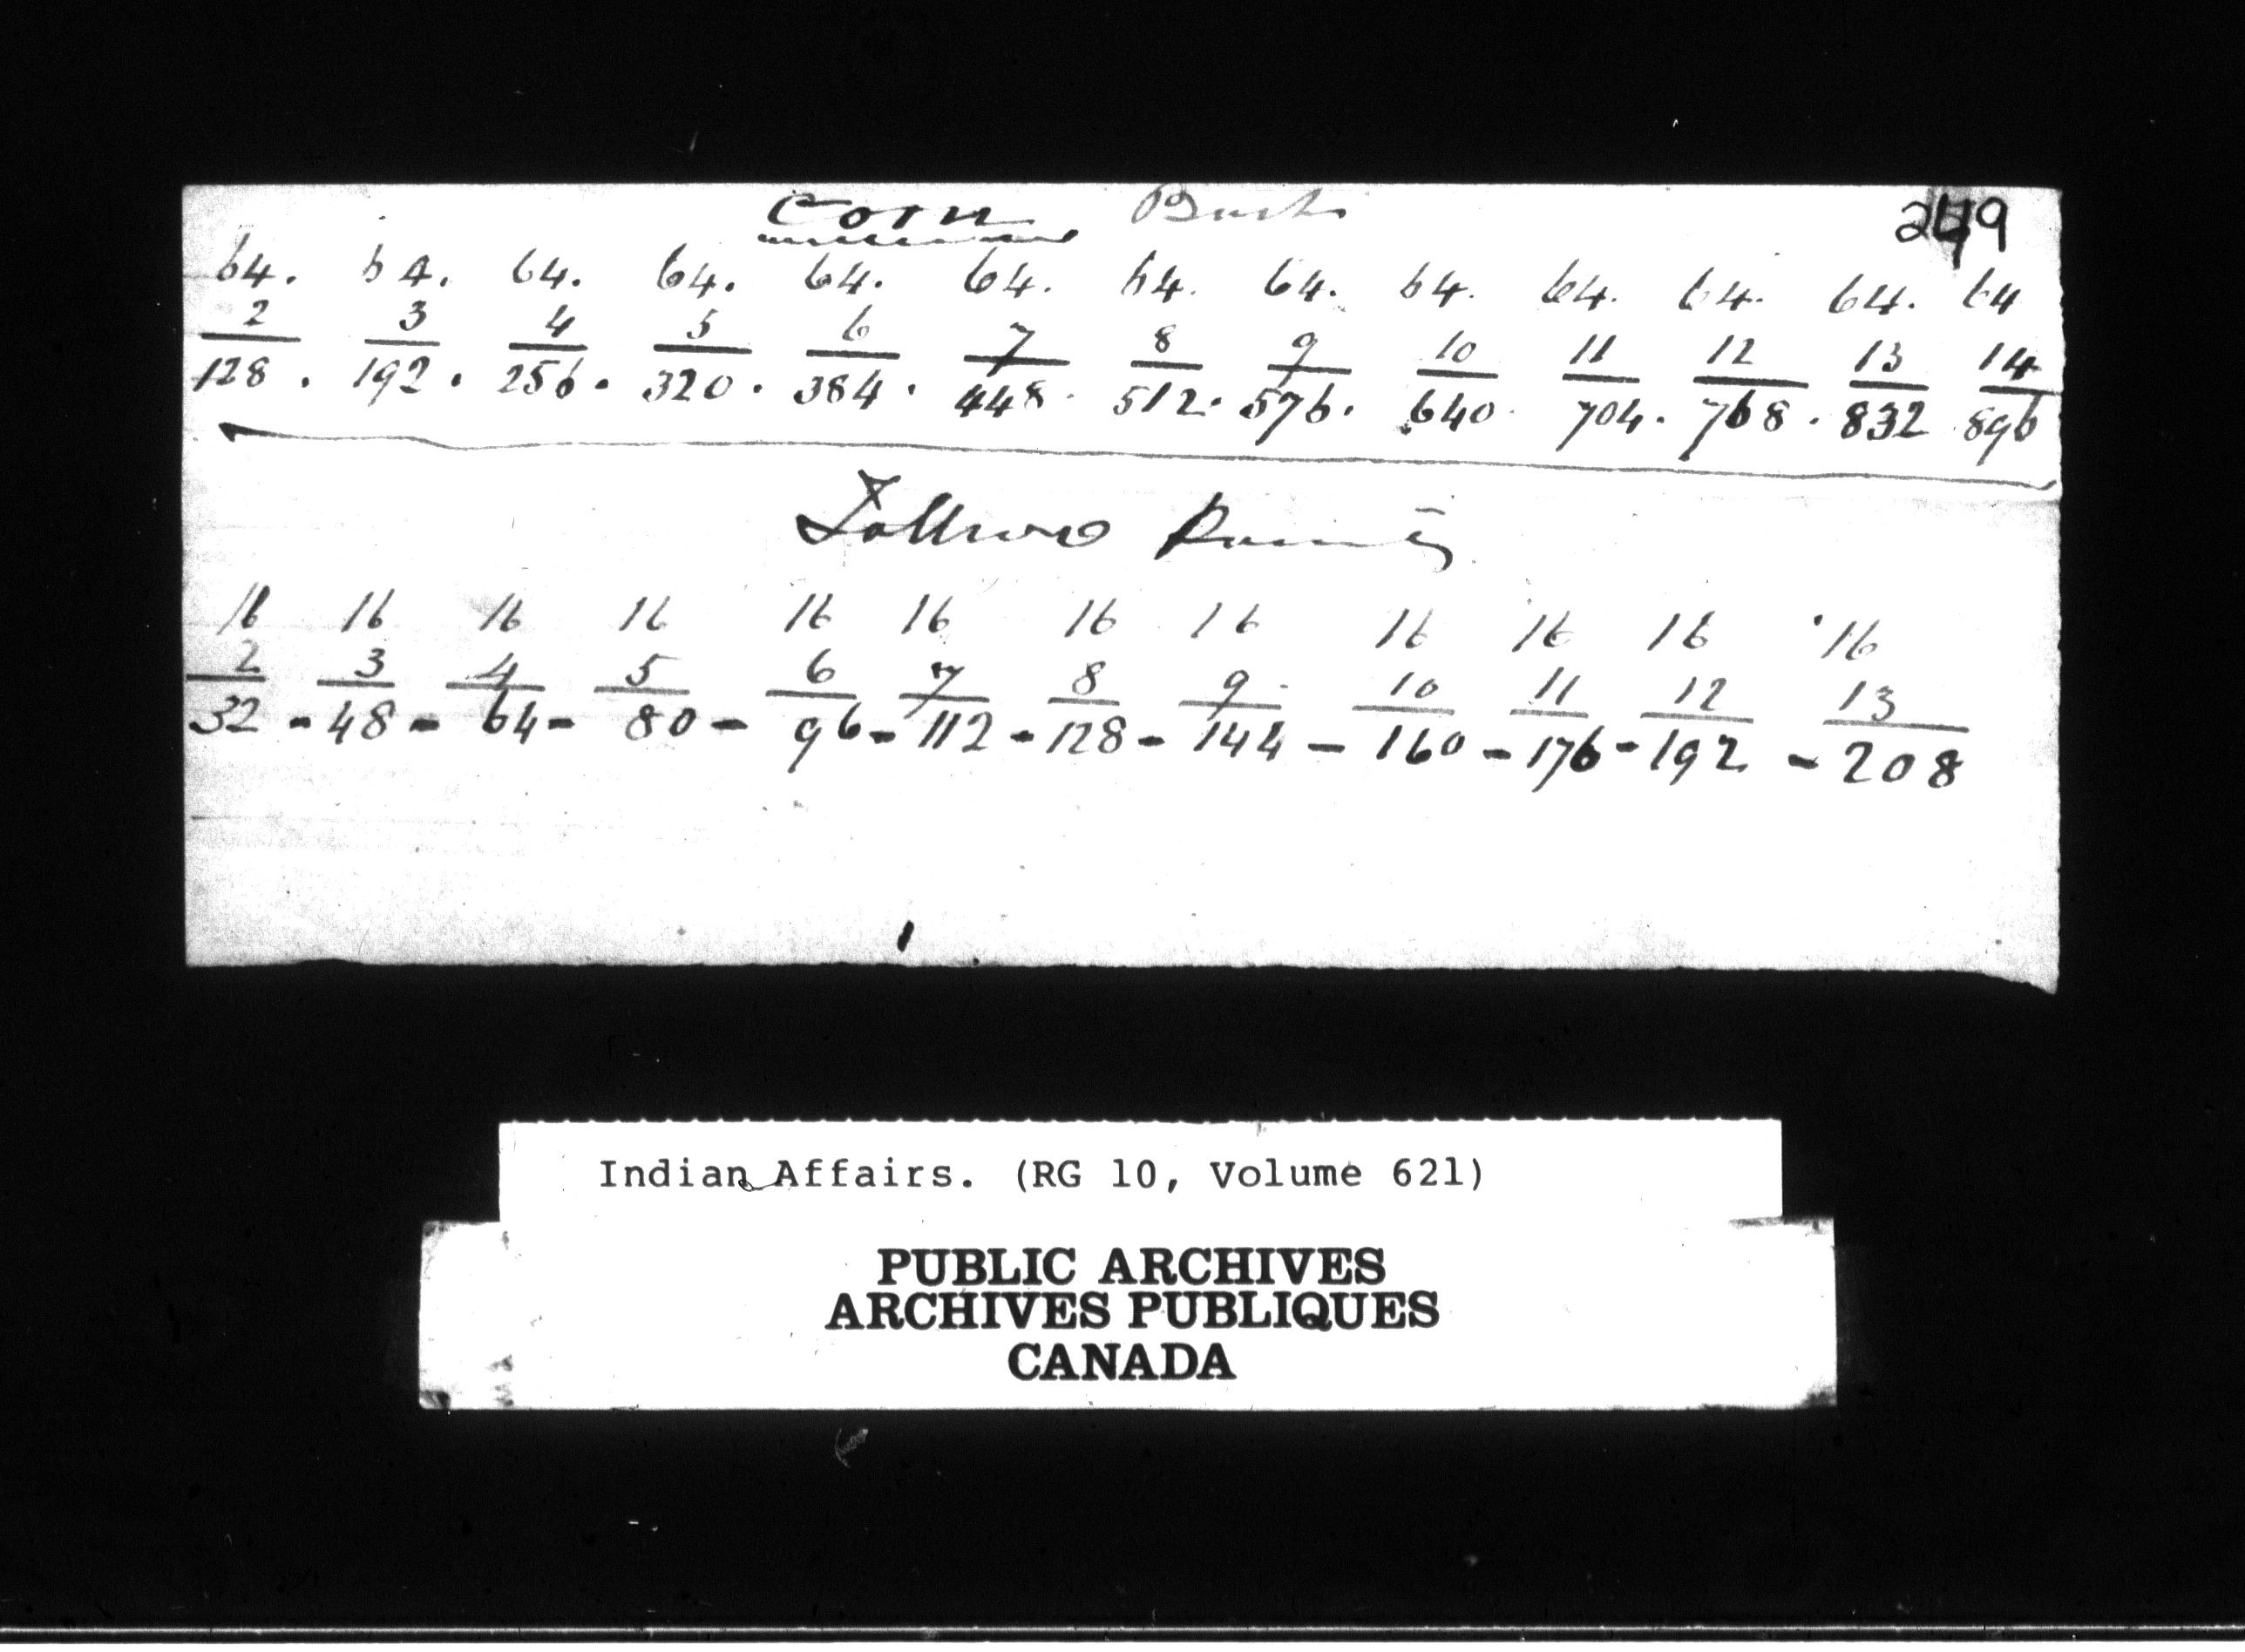 Corn Bush
64. 64. 64. 64. 64. 64. 64. 64. 64. 64. 64. 64. 64
2 3 4 5 6 7 8 9 10 11 12 13 14
128 . 192 . 256 . 320 . 384 . 448 . 512 . 576 . 640 . 704 . 768 . 832 896
16 16 16 16 16 16 16 16 16 16 16 16
2 3 4 5 6 7 8 9 10 11 12 13
32 - 48 - 64 - 80 - 96 - 112 - 128 - 144 - 160 - 176 - 192 - 208
Indian Affairs. (RG 10, Volume 621)
PUBLIC ARCHIVES
ARCHIVES PUBLIQUES
CANADA